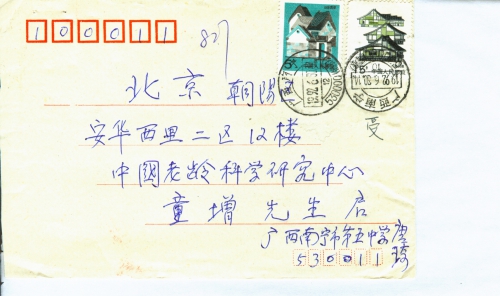 100011
北京 朝阳
安华西里二区12楼
中國老龄科学研究中心
童增 先生 启
广西南宁市第五中学
530011